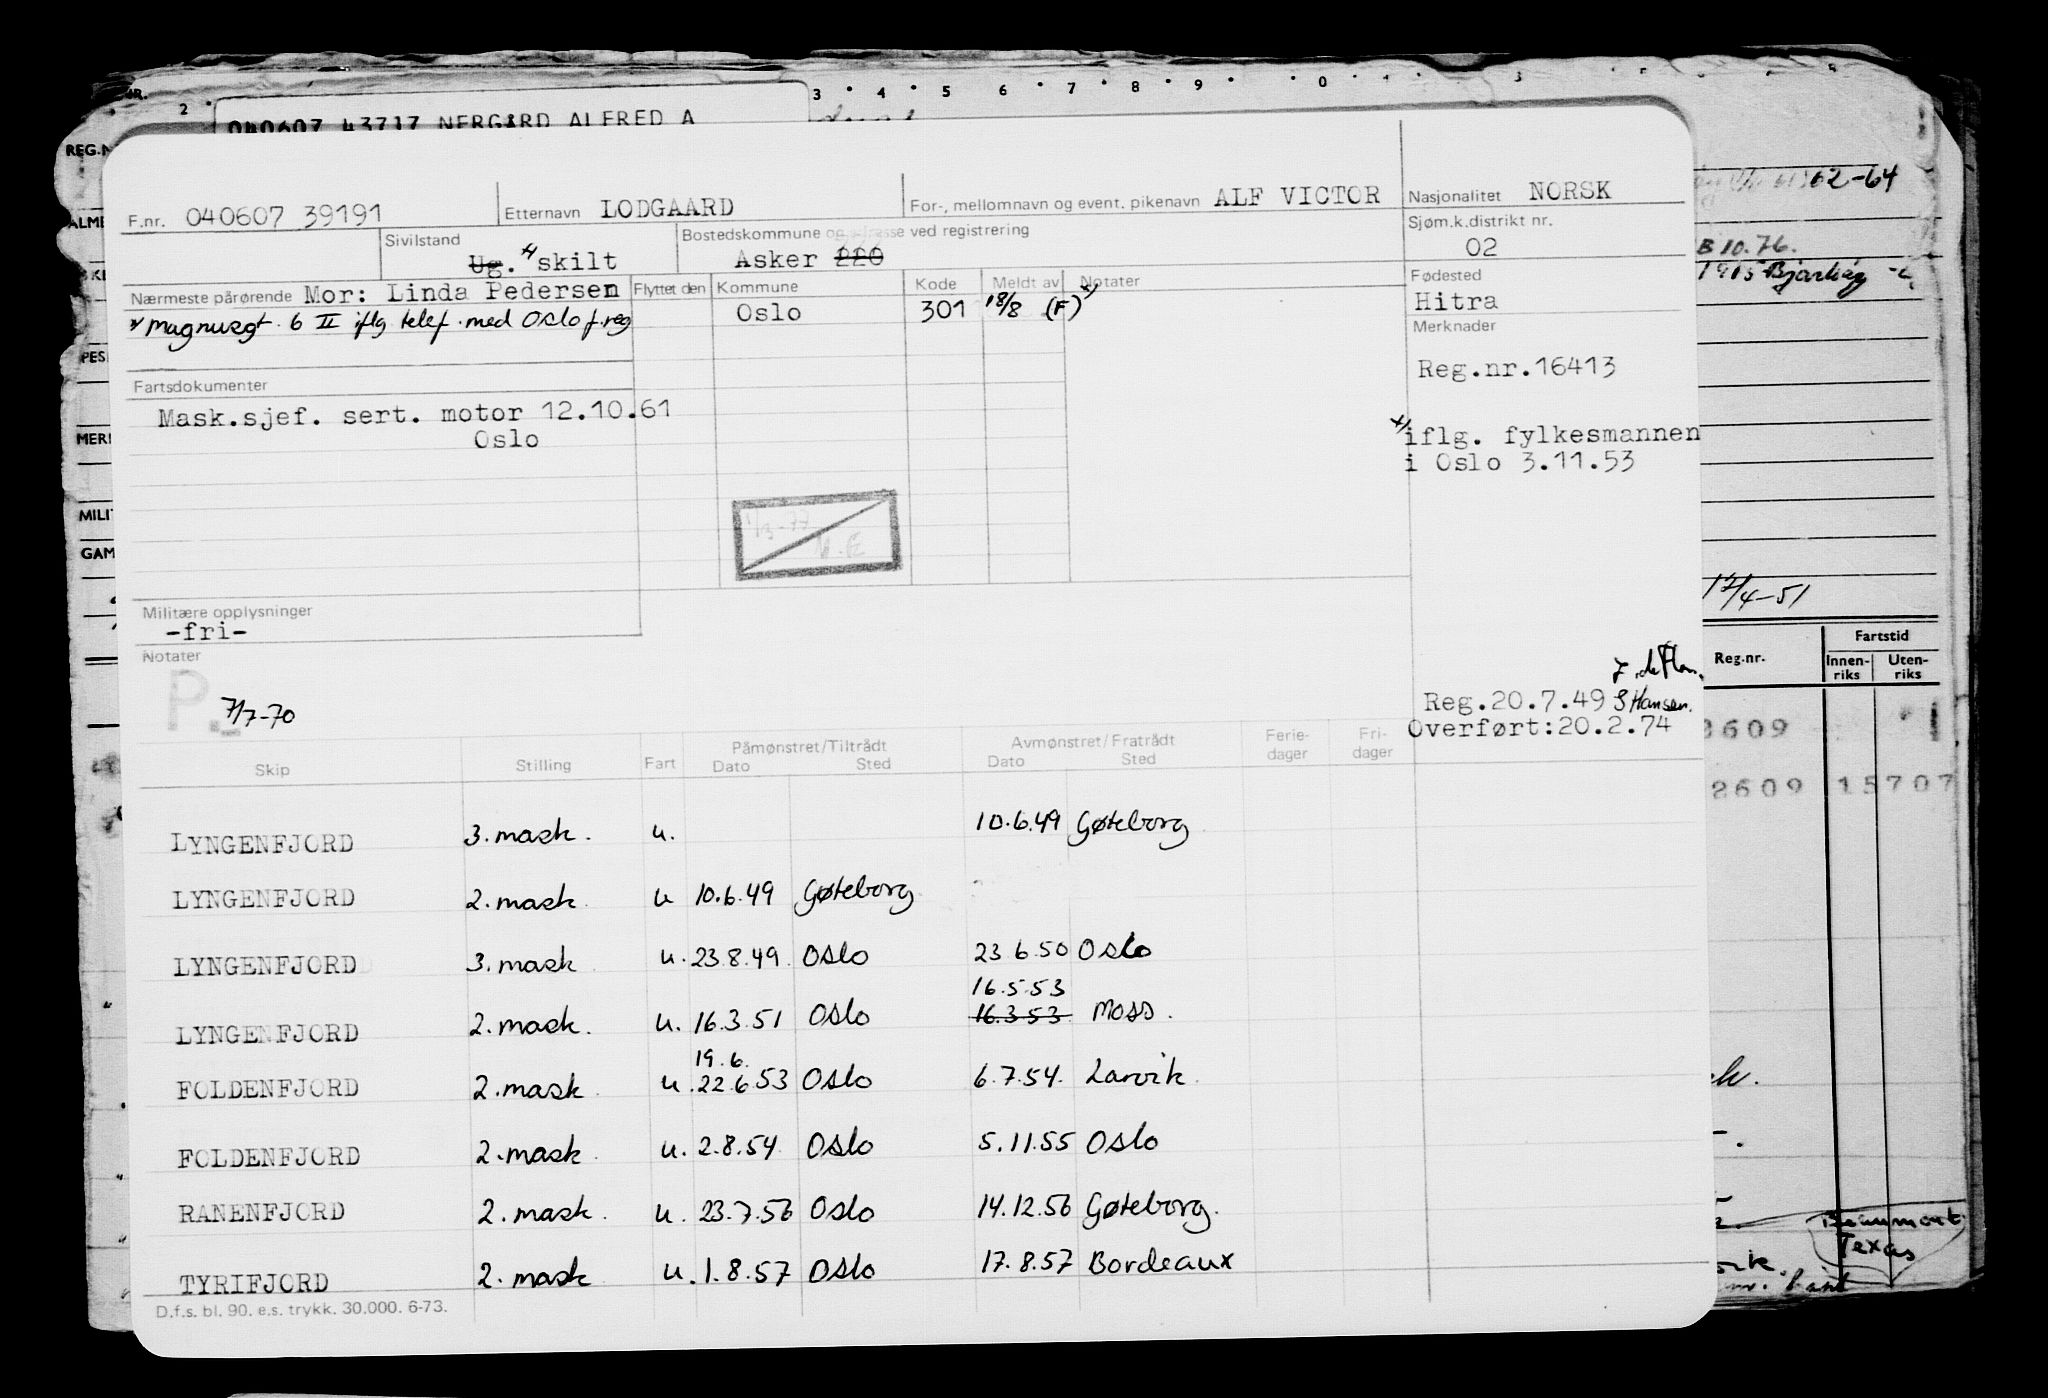 040607 43717 NERGÅRD ALFRED A
F.nr. 040607 39191 Etternavn LODGAARD For-, mellomnavn og event. pikenavn ALF VICTOR Nasjonalitet NORSK
Sivilstand Ug. x/ skilt Bostedskommune og adresse ved registrering Asker 220 Sjøm.k.distrikt nr. 02
Nærmeste pårørende Mor: Linda Pedersen Flyttet den Kommune Kode Meldt av Notater Fødested Hitra
x/ Magnusgt. 6 II iflg. telef. med Oslo f.reg Oslo 301 18/8 (F) x)
Merknader
Reg.nr.16413
Fartsdokumenter
Mask.sjef. sert. motor 12.10.61
Oslo
x/ iflg. fylkesmannen
i Oslo 3.11.53
1/3-77
Militære opplysninger
-fri-
Notater
P. 7/7-70
Reg.20.7.49 S Hansen.
Overført:20.2.74
Skip Stilling Fart Påmønstret/Tiltrådt Dato Sted Avmønstret/Fratrådt Dato Sted Ferie-dager Fri-dager
LYNGENFJORD 3. mask. u. 10.6.49 Gøteborg
LYNGENFJORD 2. mask u 10.6.49 Gøteborg
LYNGENFJORD 3. mask u. 23.8.49. Oslo 23 6.50 Oslo
16.5.53
LYNGENFJORD 2. mask. u. 16.3.51 Oslo 16.3.53. Moss.
19.6.
FOLDENFJORD 2. mask u. 22.6.53 Oslo 6.7.54. Larvik.
FOLDENFJORD 2. mask u. 2.8.54 Oslo 5.11.55 Oslo
RANENFJORD 2. mask. u. 23.7.56 Oslo 14.12.56 Gøteborg.
TYRIFJORD 2. mask u. 1.8.57 Oslo 17.8.57 Bordeaux
D.f.s. bl. 90. e.s. trykk. 30.000. 6-73.
REG.N
ALME
PES
MERI
MILI
GAM
62-64
B 10.76.
1915 Bjarkøy
17/4-51
Reg.nr. Fartstid
Innen-riks Uten-riks
3609 1
2609 15707
Beaumont
Texas